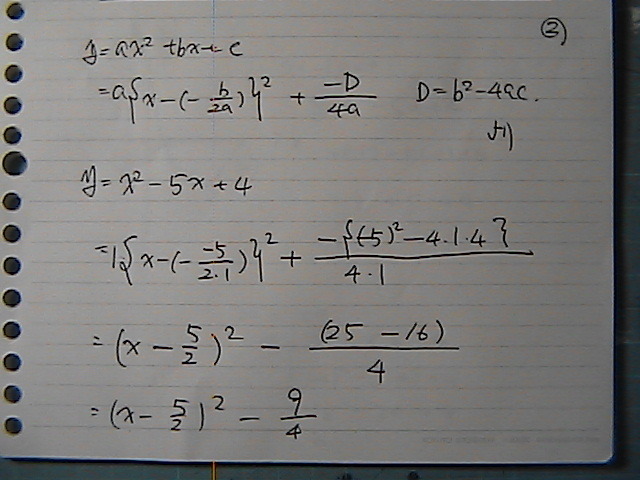 ②
y=ax²+bx+c
=a{x-(-b/2a)}²+-D/4a D=b²-4ac.
より
y=x²-5x+4
=1{x-(--5/2·1)}²+-{(-5)²-4·1·4}/4·1
=(x-5/2)²-(25-16)/4
=(x-5/2)²-9/4